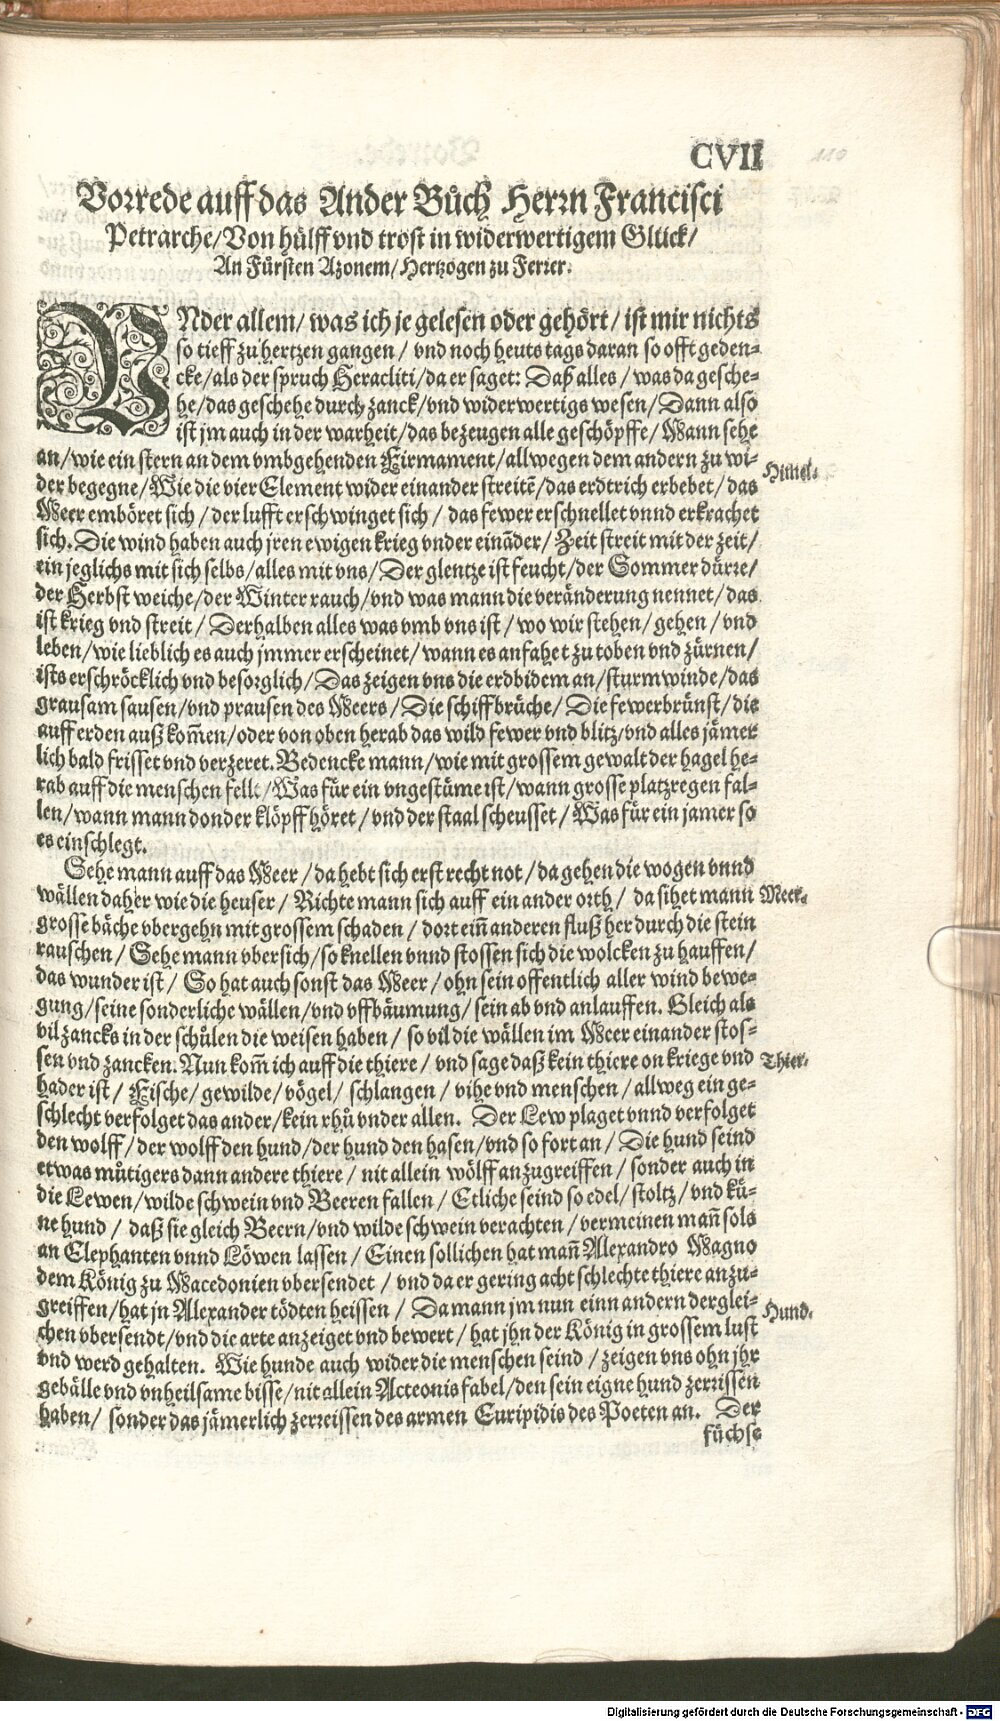 CVII
Vorrede auff das Ander Bůch Herrn Francisci
Petrarche/Von hülff vnd trost in widerwertigem Glück/
An Fürsten Azonem/Hertzogen zu Ferier.
VNder allem/was ich je gelesen oder gehört/ist mir nichts
so tieff zu hertzen gangen/vnd noch heuts tags daran so offt geden-
cke/als der spruch Heracliti/da er saget: Daß alles/was da gesche-
he/das geschehe durch zanck/vnd widerwertigs wesen/Dann also
ist jm auch in der warheit/das bezeugen alle geschöpffe/Mann sehe
an/wie ein stern an dem vmbgehenden Firmament/allwegen dem andern zu wi-
Himel.
der begegne/Wie die vier Element wider einander streitē/das erdtrich erbebet/das
Meer emböret sich/der lufft erschwinget sich/das fewer erschnellet vnnd erkrachet
sich. Die wind haben auch jren ewigen krieg vnder eināder/Zeit streit mit der zeit/
ein jeglichs mit sich selbs/alles mit vns/Der glentze ist feucht/der Sommer dürre/
der Herbst weiche/der Winter rauch/vnd was mann die veränderung nennet/das
ist krieg vnd streit/Derhalben alles was vmb vns ist/wo wir stehen/gehen/vnd
leben/wie lieblich es auch jmmer erscheinet/wann es anfahet zu toben vnd zürnen/
ists erschröcklich vnd besorglich/Das zeigen vns die erdbidem an/sturmwinde/das
grausam sausen/vnd prausen des Meers/Die schiffbrüche/Die fewerbrünst/die
auff erden auß kom̄en/oder von oben herab das wild fewer vnd blitz/vnd alles jämer
lich bald frisset vnd verzeret. Bedencke mann/wie mit grossem gewalt der hagel he-
rab auff die menschen felle/Was für ein vngestüme ist/wann grosse platzregen fal-
len/wann mann donder klöpff höret/vnd der staal scheusset/Was für ein jamer so
es einschlegt.
Sehe mann auff das Meer/da hebt sich erst recht not/da gehen die wogen vnnd
wällen daher wie die heuser/Richte mann sich auff ein ander orth/da sihet mann
Meer.
grosse bäche vbergehn mit grossem schaden/dort ein̄ anderen fluß her durch die stein
rauschen/Sehe mann vbersich/so knellen vnnd stossen sich die wolcken zu hauffen/
das wunder ist/So hat auch sonst das Meer/ohn sein offentlich aller wind bewe-
gung/seine sonderliche wällen/vnd vffbäumung/sein ab vnd anlauffen. Gleich als
vil zancks in der schůlen die weisen haben/so vil die wällen im Meer einander stos-
sen vnd zancken. Nun kom̄ ich auff die thiere/vnd sage daß kein thiere on kriege vnd
Thier.
hader ist/Fische/gewilde/vögel/schlangen/vihe vnd menschen/allweg ein ge-
schlecht verfolget das ander/kein rhů vnder allen. Der Lew plaget vnnd verfolget
den wolff/der wolff den hund/der hund den hasen/vnd so fort an/Die hund seind
etwas můtigers dann andere thiere/nit allein wölff anzugreiffen/sonder auch in
die Lewen/wilde schwein vnd Beeren fallen/Etliche seind so edel/stoltz/vnd kü-
ne hund/daß sie gleich Beern/vnd wilde schwein verachten/vermeinen man̄ sols
an Elephanten vnnd Löwen lassen/Einen sollichen hat man̄ Alexandro Magno
dem König zu Macedonien vbersendet/vnd da er gering acht schlechte thiere anzu-
greiffen/hat jn Alexander tödten heissen/Da mann jm nun einn andern derglei-
Hund.
chen vbersendt/vnd die arte anzeiget vnd bewert/hat jhn der König in grossem lust
vnd werd gehalten. Wie hunde auch wider die menschen seind/zeigen vns ohn jhr
gebälle vnd vnheilsame bisse/nit allein Acteonis fabel/den sein eigne hund zerrissen
haben/sonder das jämerlich zerreissen des armen Euripidis des Poeten an. Der
füchse
Digitalisierung gefördert durch die Deutsche Forschungsgemeinschaft - DFG